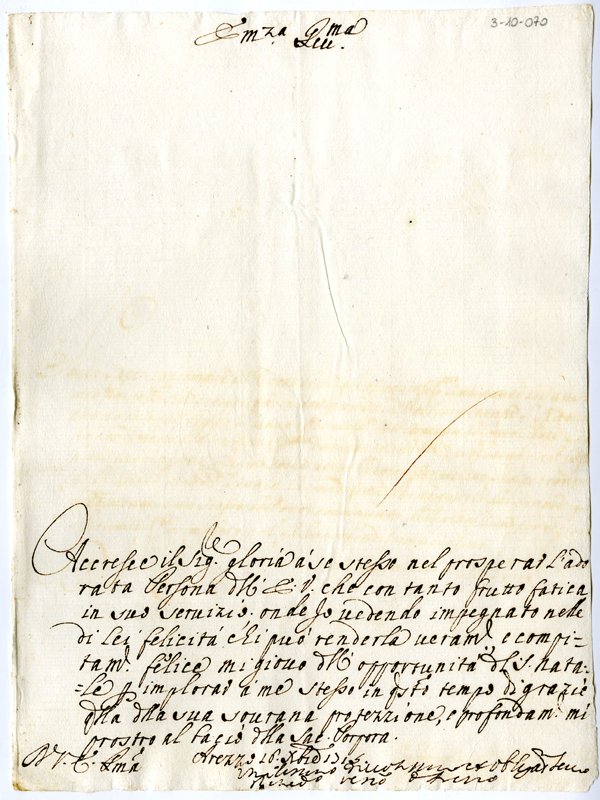 3-10-070
Em.za Reu.ma
Accresce il Sig.re gloria à se stesso nel prosperar l'ado
rata Persona dll' E. V. che con tanto frutto fatica
in suo seruizio: onde Io uedendo impegnato nelle
di Lei felicità chi può renderla ueram.e e compi=
tam.e felice mi giouo dll' opportunità dl S. Nata=
=le p implorar à me stesso in qsto tempo di grazie
qlla dlla sua sourana protezzione, e profondam.e mi
prostro al bacio dlla Sac. Porpora.
D V. E. Rma Arezzo 18. Xbre